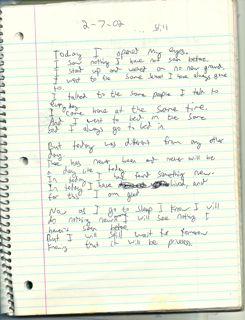 2-7-02
Today I opened my eyes.
I saw nothing I have not seen before.
I stood up and walked on no new ground.
I went to the same school I have always gone
to.
I talked to the same people I talk to
every day.
I came home at the same time.
And I went to bed in the same
bed I always go to bed in.
But today was different from any other
day.
There has never been and never will be
a day like today.
In today I have found something new.
In today I have lived, and
for this I am glad.
Now as I go to sleep I know I will
do nothing new. I will see nothing I
haven't seen before.
But I will still wait for tomorrow
knowing that it will be priceless.